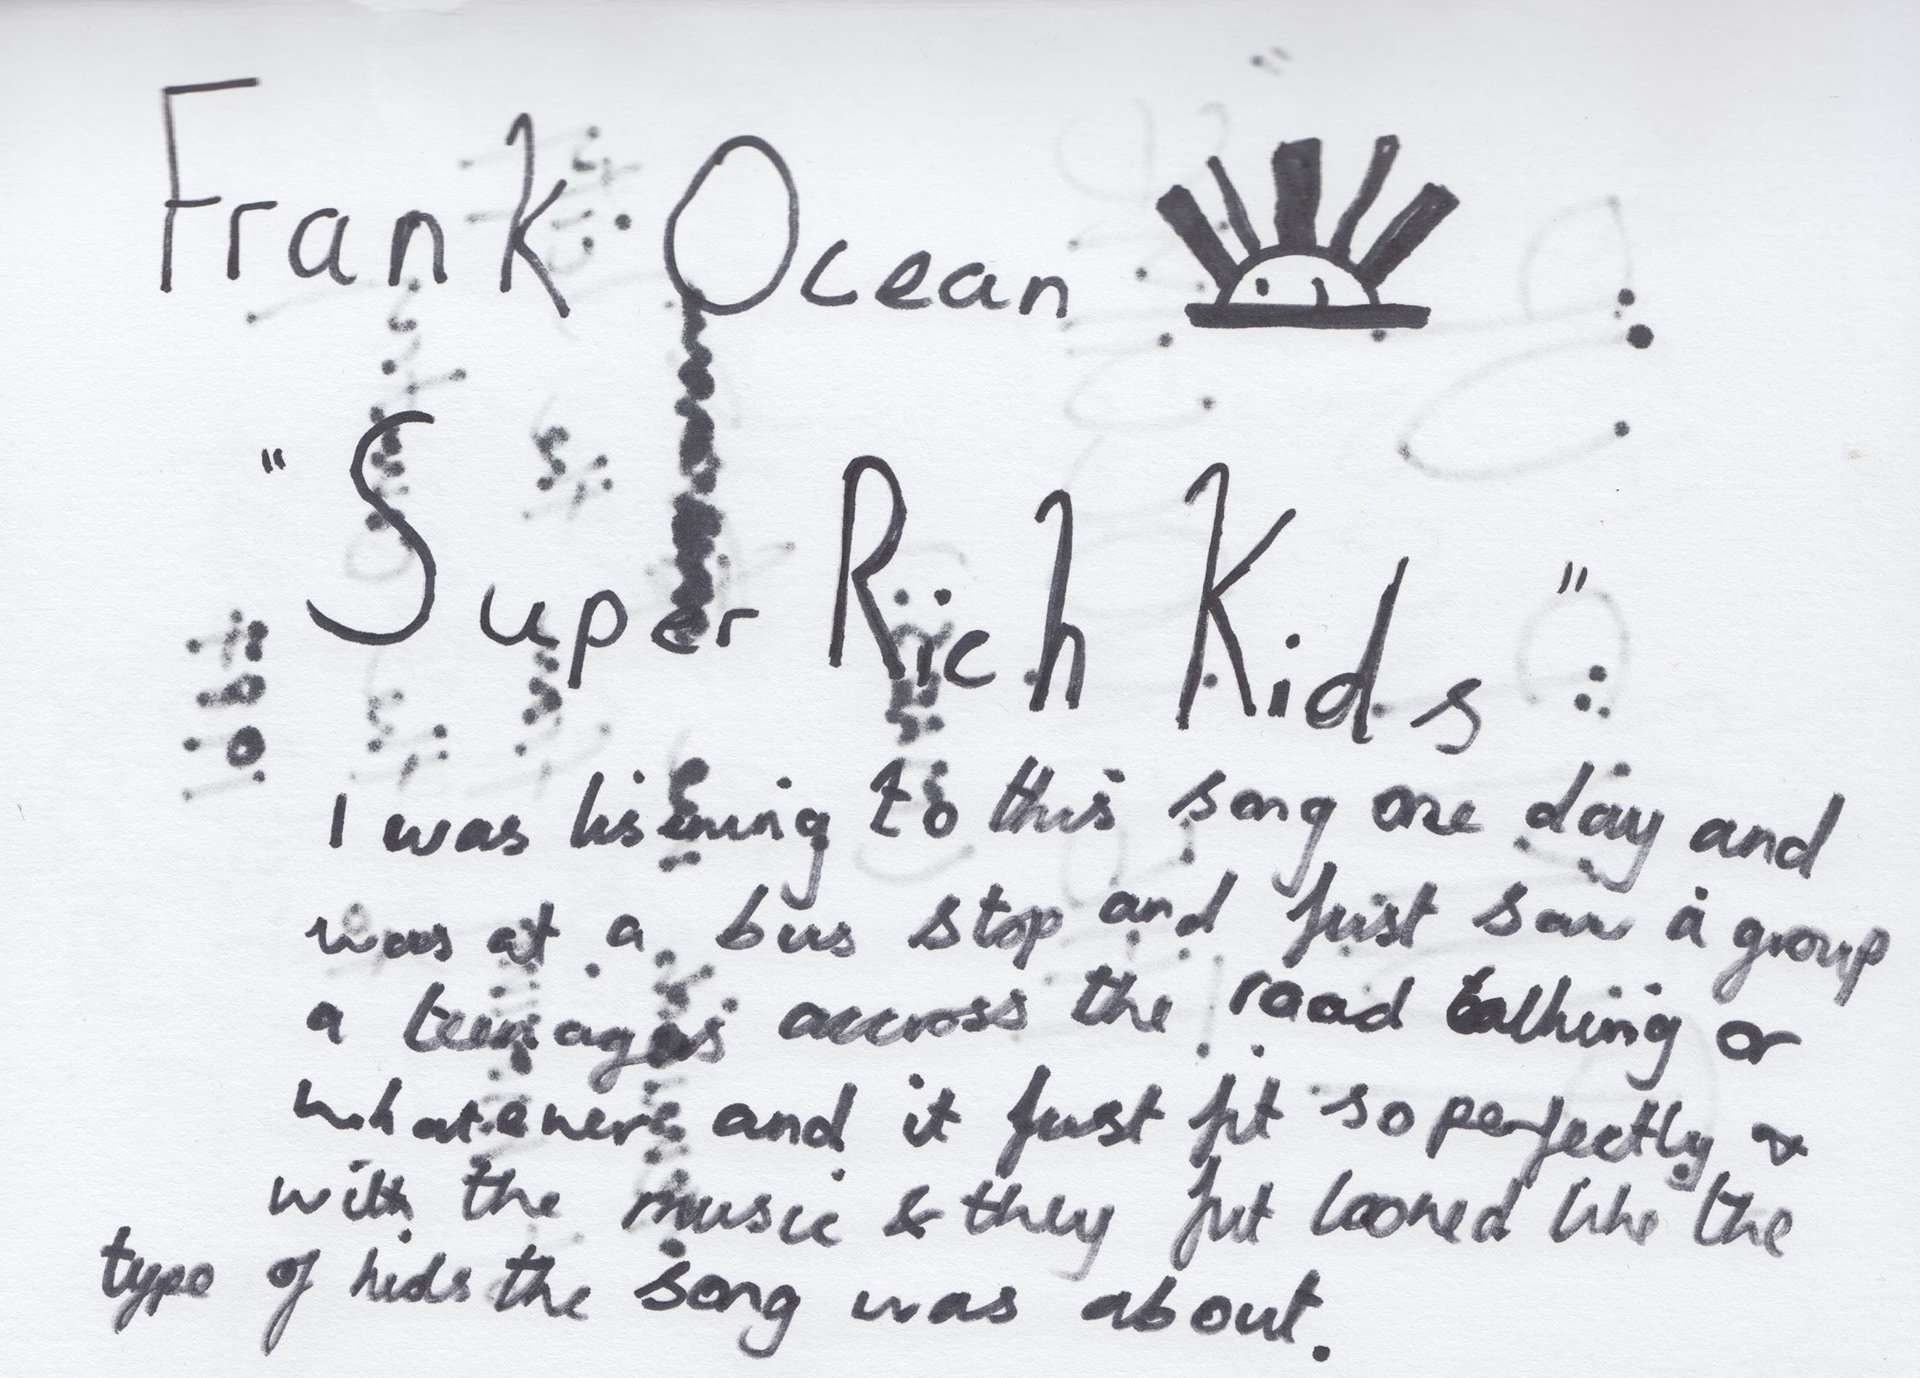 Frank Ocean
"Super Rich Kids":
I was listning to this song one day and
was at a bus stop and just saw a group
a teenages accross the road talking or
whatever and it just fit so perfectly &
with the music & they just looked like the
type of kids the song was about.